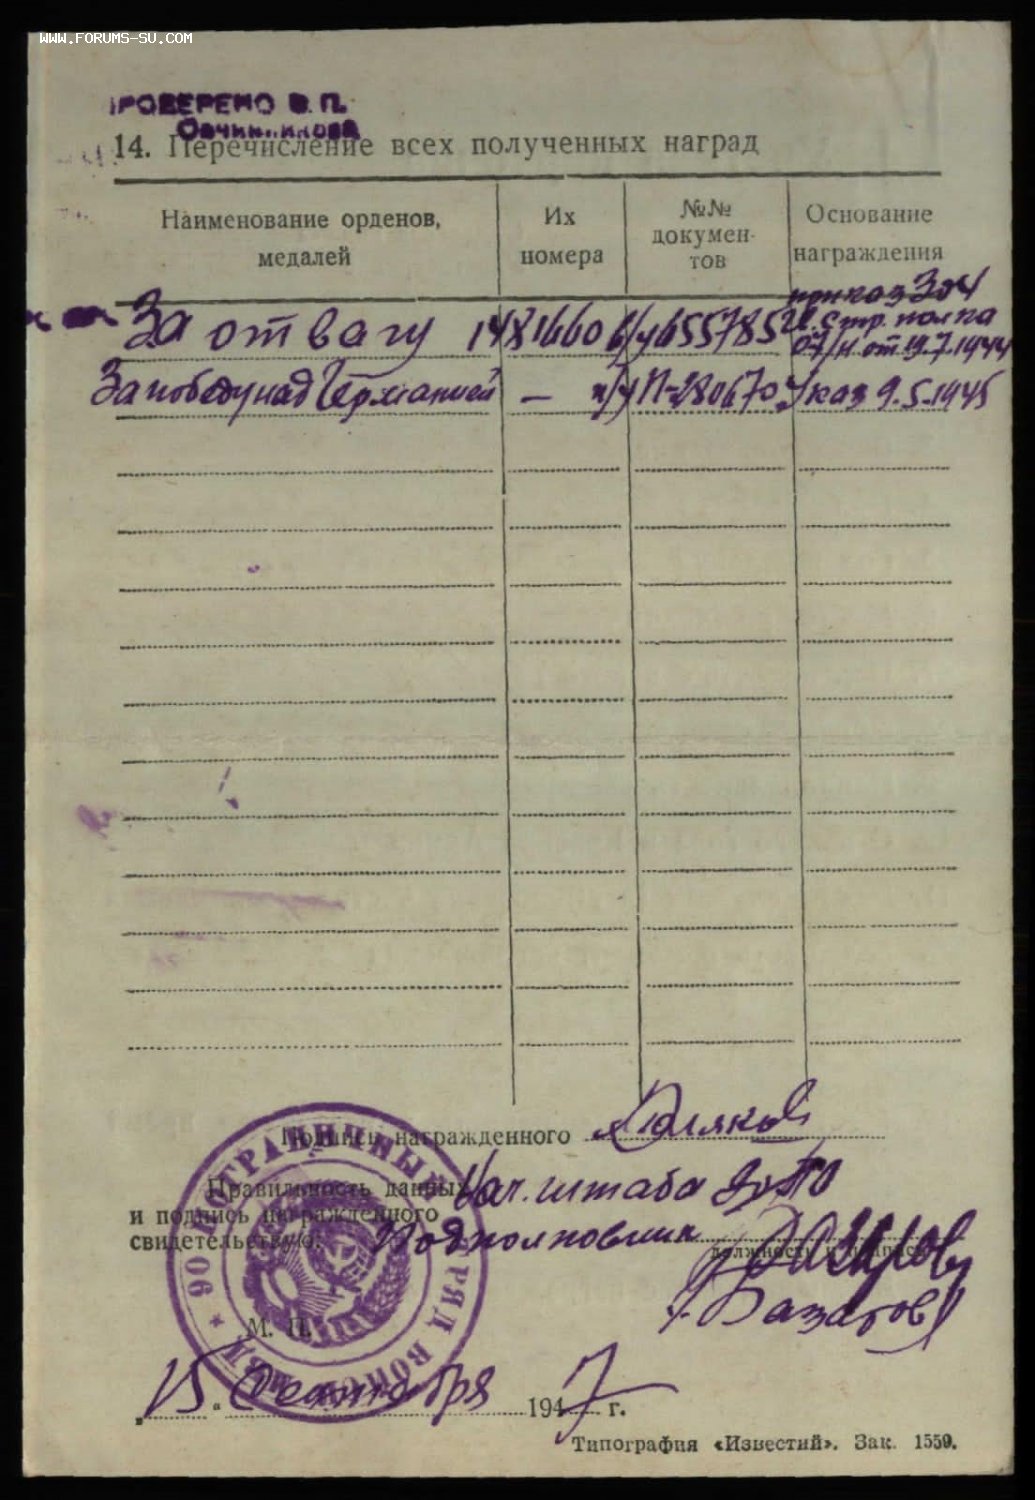 WWW.FORUMS-SU.COM
ПРОВЕРЕНО В.П.
Овчинникова
14. Перечисление всех полученных наград
Наименование орденов, медалей
Их номера
№№ докумен-
тов
Основание награждения
За отвагу 1481660 б/у655785 приказ 304
И. Стр. полка
07/н от 19.7.1944
За победу над Германией — н/у П-280670 Указ 9.5.1945
Подпись награжденного
Правильность данных
и подпись награжденного
свидетельствую:
Нач. штаба 90 ПО
Подполковник
должность и подпись
Базаров
М. П.
90 ПОГРАНИЧНЫЙ ОТРЯД ВОЙСК МВД
„15" октября 1947 г.
Типография «Известий». Зак. 1559.